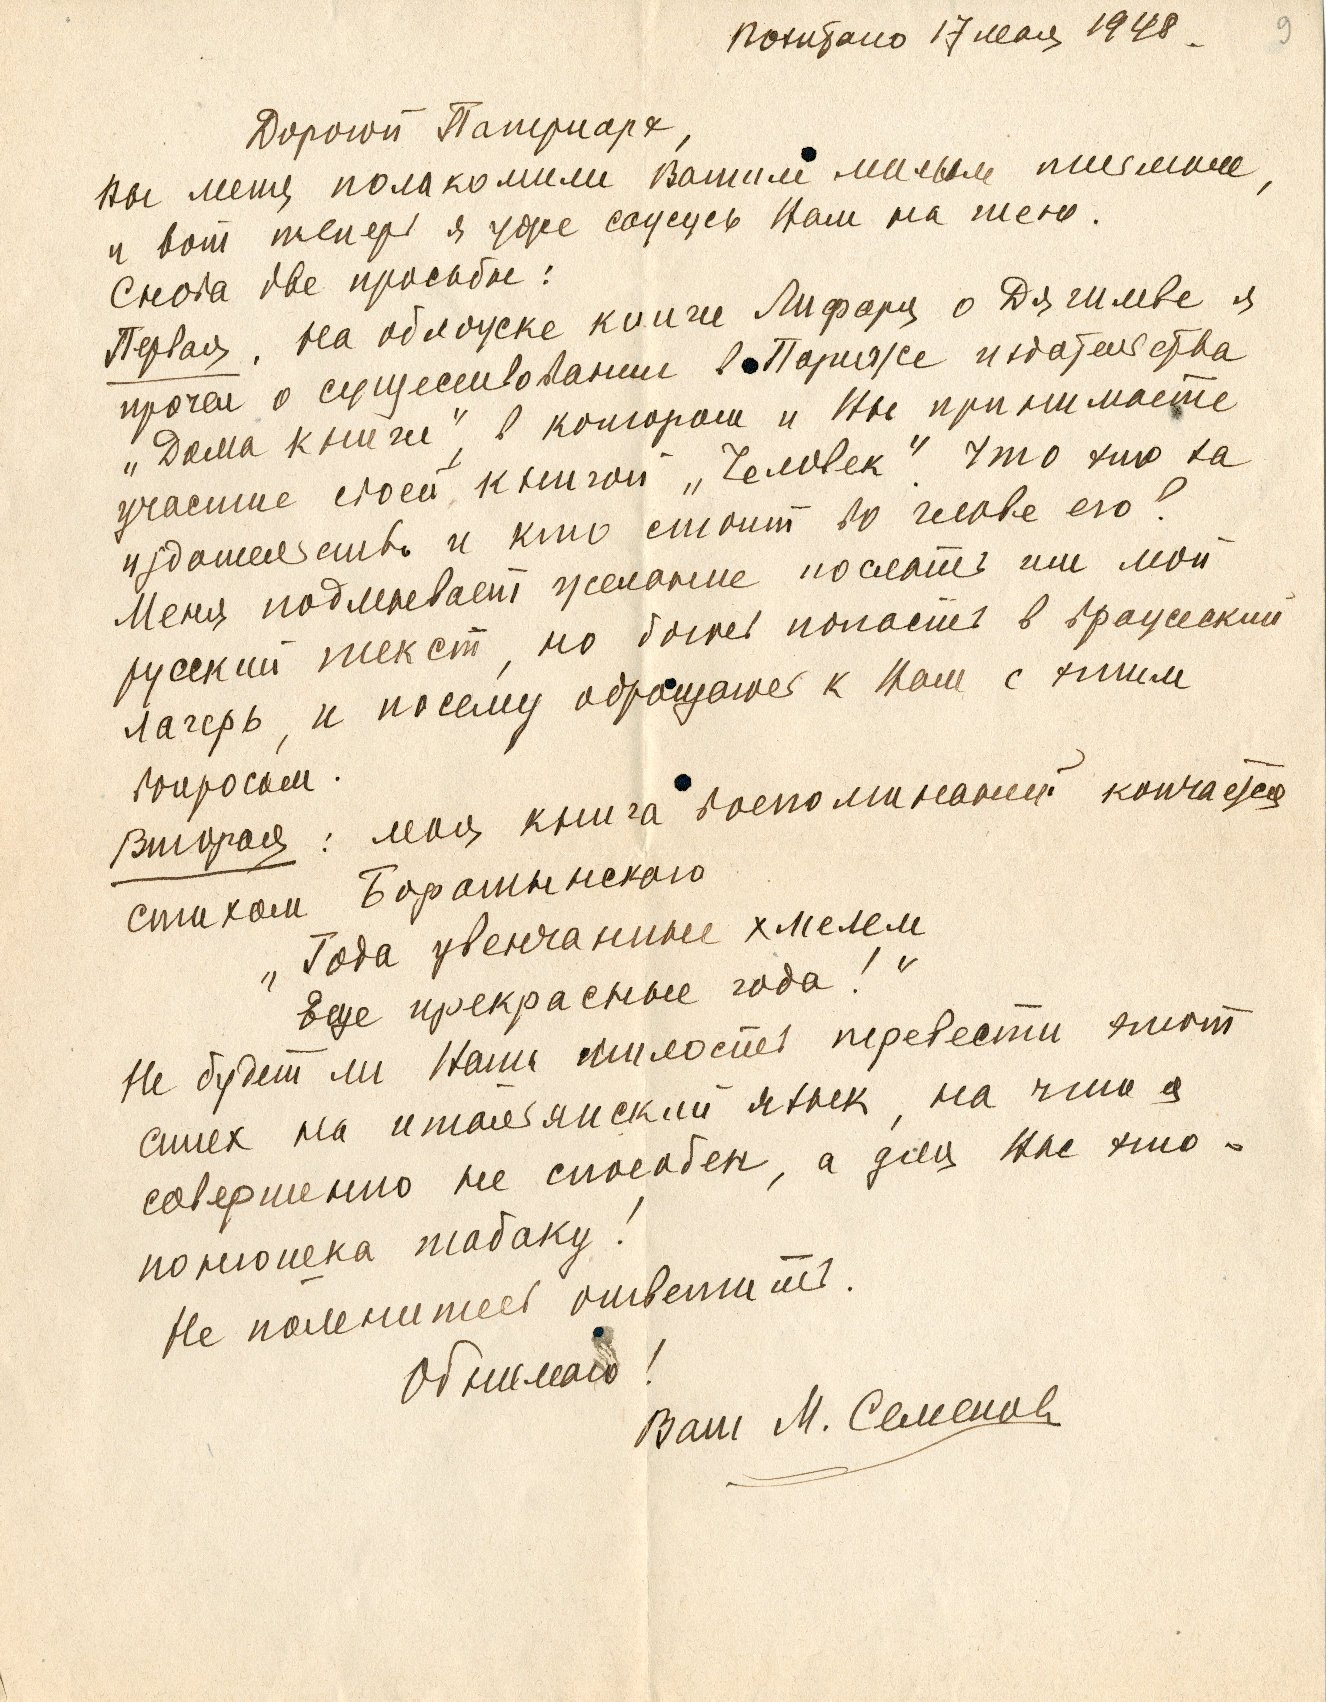 Позитано 17 мая 1948.
9
Дорогой Патриарх,
Вы меня полакомили Вашим милым письмом,
и вот теперь я уже сажусь Вам на шею.
Снова две просьбы:
Первая. На обложке книги Лифаря о Дягилеве я
прочел о существовании в Париже издательства
„Дома книги", в котором и Вы принимаете
участие своей книгой „Человек". Что это за
издательство и кто стоит во главе его?
Меня подмывает желание послать им мой
русский текст, но боюсь попасть в вражеский
лагерь, и посему обращаюсь к Вам с этим
вопросом.
Вторая: моя книга воспоминаний кончается
стихом Боратынского
„Года увенчанные хмелем
Еще прекрасные года!"
Не будет ли Ваша милость перевести этот
стих на итальянский язык, на что я
совершенно не способен, а для Вас это -
понюшка табаку!
Не поленитесь ответить.
Обнимаю!
Ваш М. Семенов